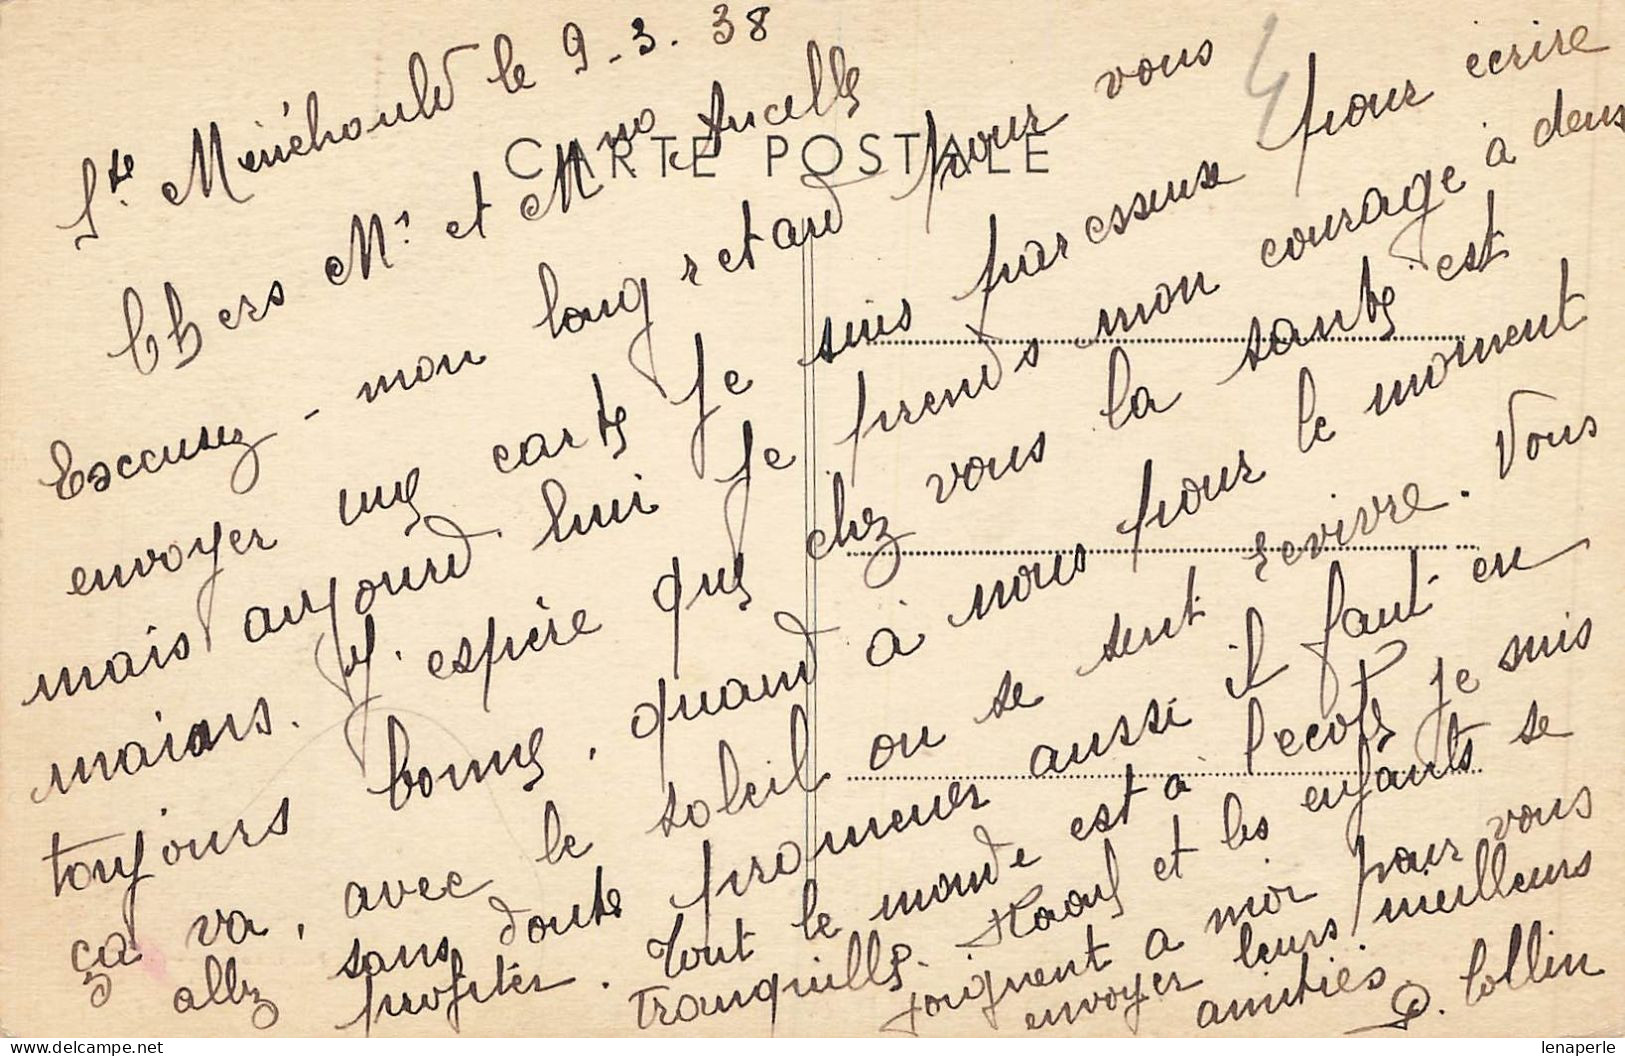 Ste Menéhould le 9-3.38
CARTE POSTALE
Chers Mr et Mme Ancelle
Exccusez - mon long retard pour vous
envoyer une carte Je suis paresseuse pour écrire
mais aujourd'hui je prends mon courage à deux
mains. J'espère que chez vous la santé est
toujours bonne, quand à nous pour le moment
ça va, avec le soleil on se sent revivre. Vous
allez sans doute promener aussi il faut en
profiter. Tout le monde est à l'ecole je suis
tranquille. Raoul et les enfants se
joignent a moi pour vous
envoyer leurs meilleurs
amitiés
D. Collin
4
lenaperle